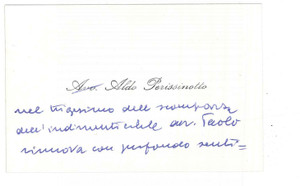 Avv. Aldo Perissinotto
nel trigesimo della scomparsa
dell'indimenticabile avv. Paolo
rinnova con profondo senti=